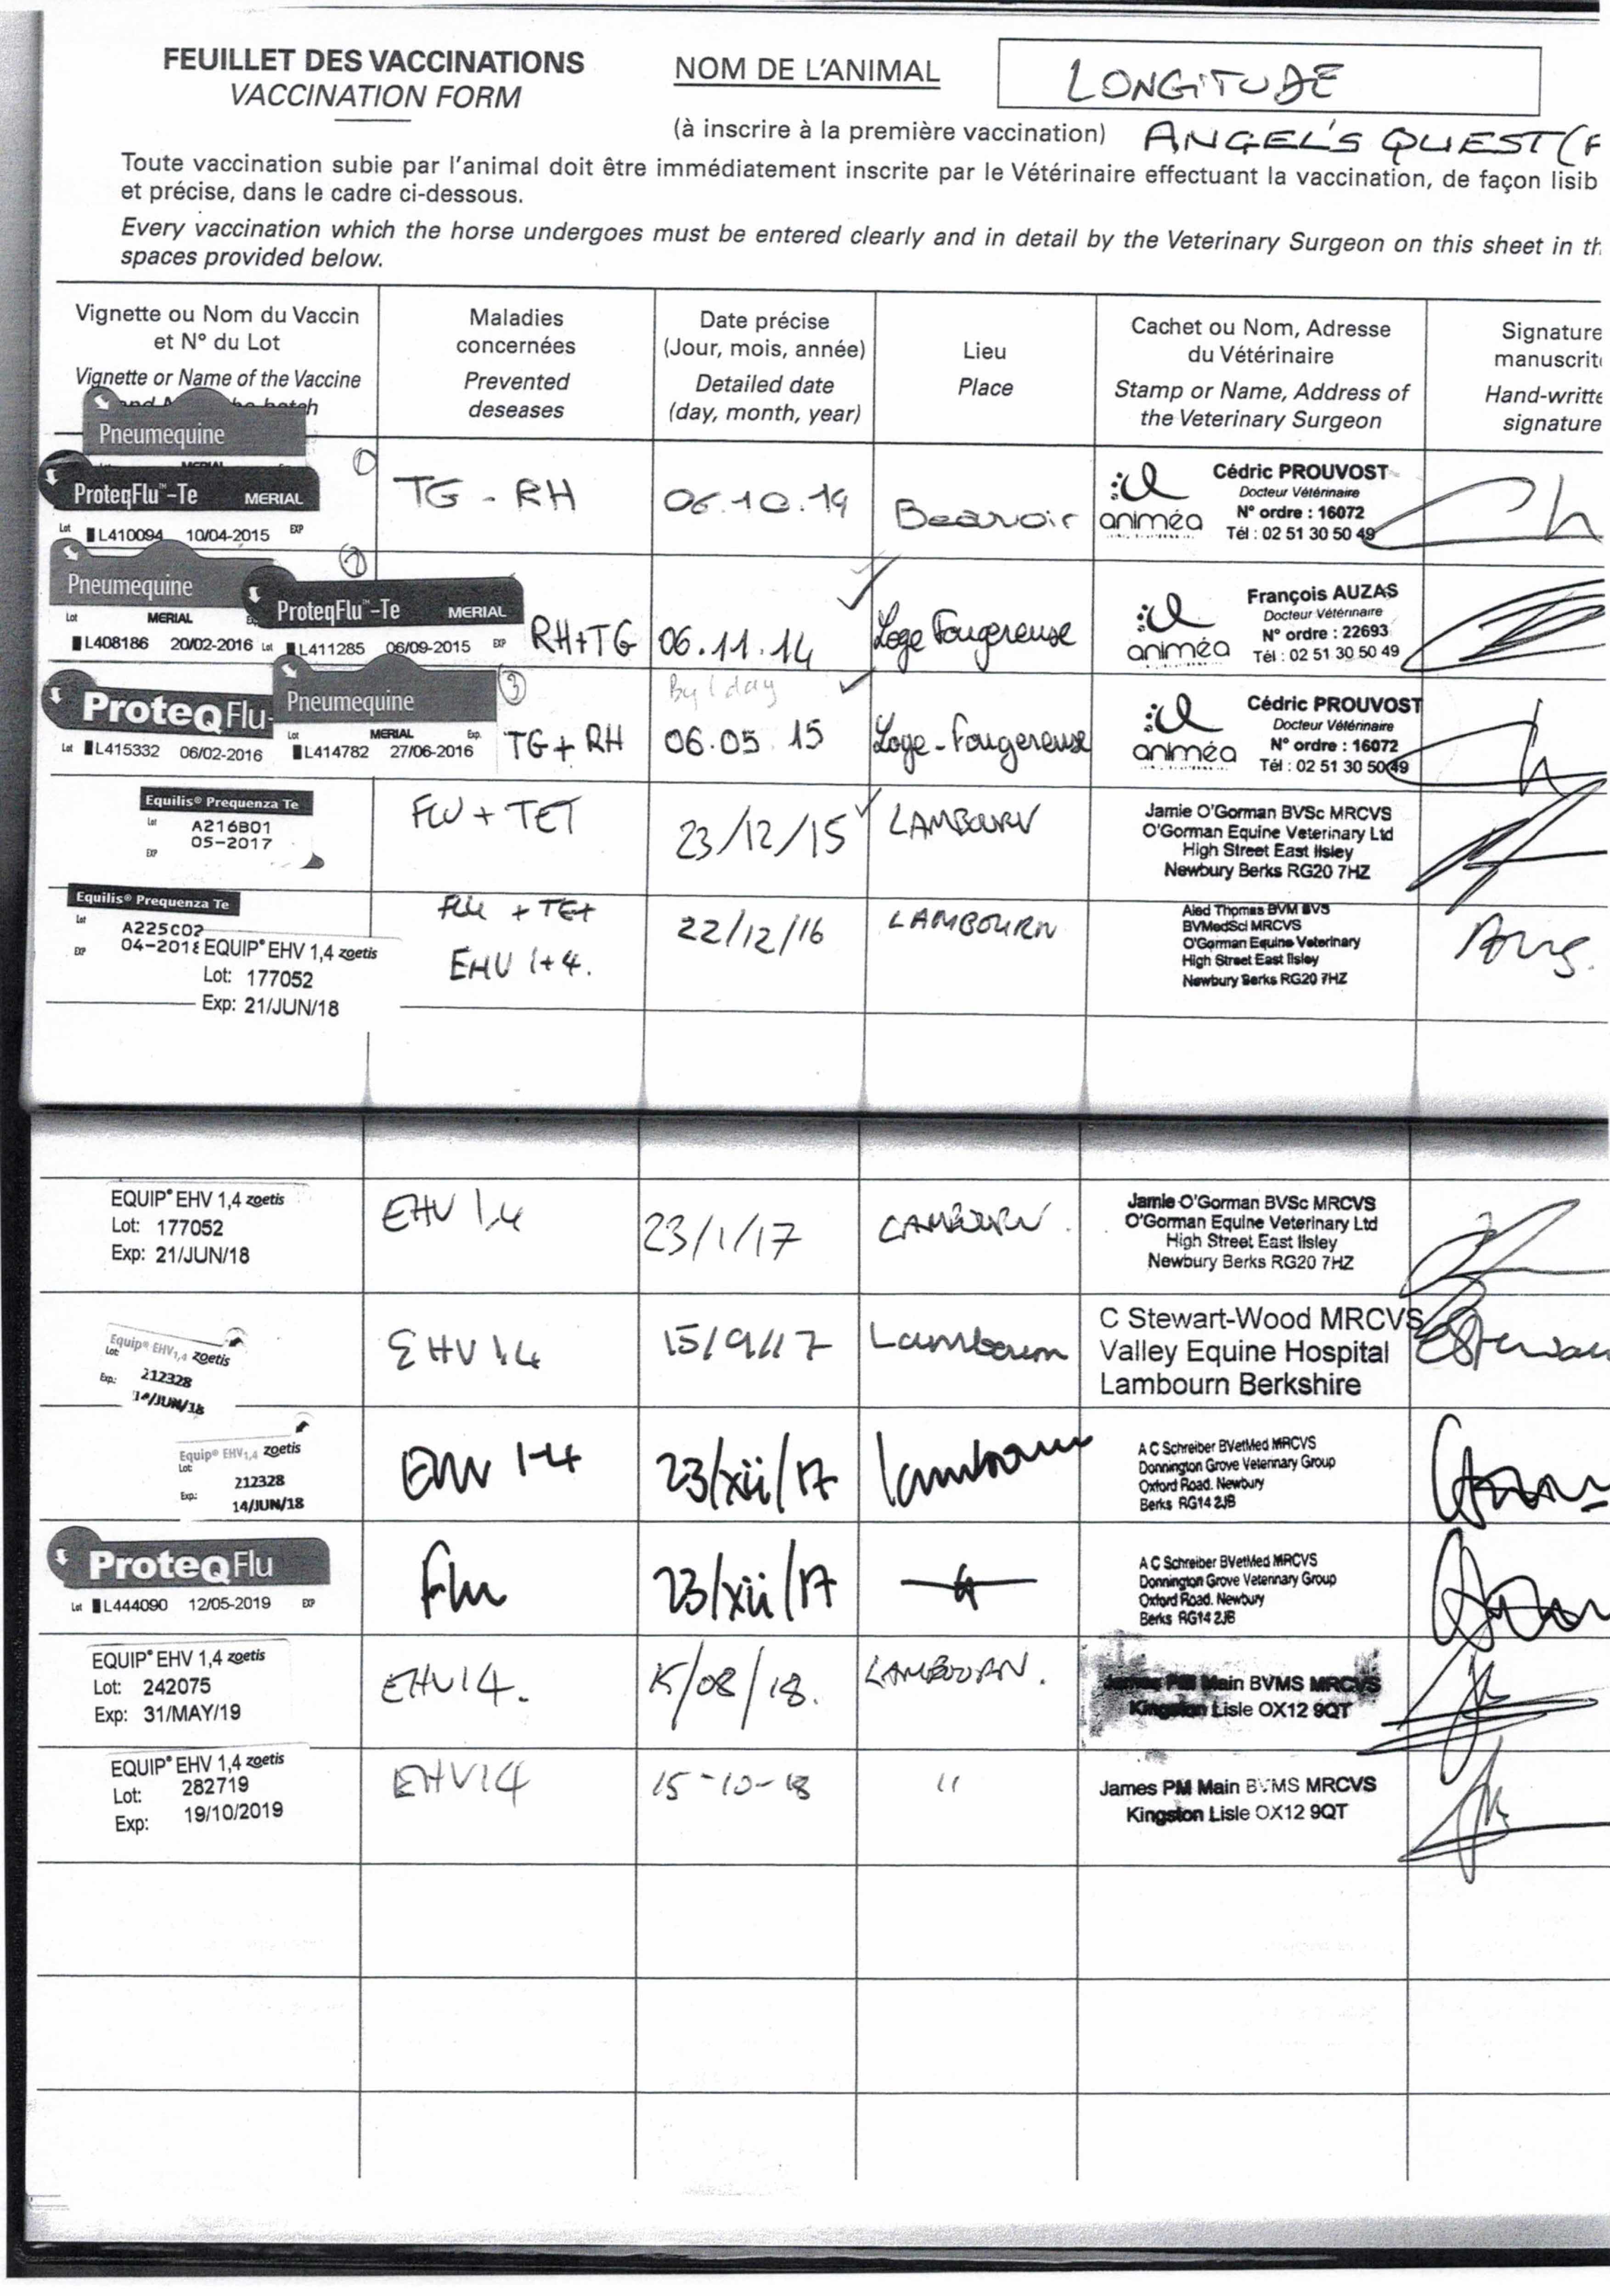 FEUILLET DES VACCINATIONS
VACCINATION FORM
NOM DE L'ANIMAL
LONGITUDE
(à inscrire à la première vaccination) ANGEL'S QUEST (F
Toute vaccination subie par l'animal doit être immédiatement inscrite par le Vétérinaire effectuant la vaccination, de façon lisib
et précise, dans le cadre ci-dessous.
Every vaccination which the horse undergoes must be entered clearly and in detail by the Veterinary Surgeon on this sheet in th
spaces provided below.
Vignette ou Nom du Vaccin
et N° du Lot
Vignette or Name of the Vaccine
Maladies
concernées
Prevented
deseases
Date précise
(Jour, mois, année)
Detailed date
(day, month, year)
Lieu
Place
Cachet ou Nom, Adresse
du Vétérinaire
Stamp or Name, Address of
the Veterinary Surgeon
Signature
manuscrit
Hand-writte
signature
Pneumequine
1
ProteqFlu™-Te MERIAL
Lot L410094 10/04-2015 EXP
TG - RH
06.10.14
Beauvoir
animéa
Cédric PROUVOST
Docteur Vétérinaire
N° ordre : 16072
Tél : 02 51 30 50 49
2
Pneumequine
Lot MERIAL
L408186 20/02-2016
ProteqFlu™-Te MERIAL
Lot L411285 06/09-2015 EXP
RH+TG
06.11.14
Loge Fougereuse
animéa
François AUZAS
Docteur Vétérinaire
N° ordre : 22693
Tél : 02 51 30 50 49
3
ProteqFlu-
Lot L415332 06/02-2016
Pneumequine
Lot MERIAL Exp.
L414782 27/06-2016
TG + RH
By 1 day
06.05.15
Loge-Fougereuse
animéa
Cédric PROUVOST
Docteur Vétérinaire
N° ordre : 16072
Tél : 02 51 30 50 49
Equilis® Prequenza Te
Lot A216B01
05-2017
EXP
FLU + TET
23/12/15
LAMBOURN
Jamie O'Gorman BVSc MRCVS
O'Gorman Equine Veterinary Ltd
High Street East Ilsley
Newbury Berks RG20 7HZ
Equilis® Prequenza Te
Lot A225C02
EXP 04-2018
EQUIP® EHV 1,4 zoetis
Lot: 177052
Exp: 21/JUN/18
FLU + TET
EHV 1+4.
22/12/16
LAMBOURN
Aled Thomas BVM BVS
BVMedSci MRCVS
O'Gorman Equine Veterinary
High Street East Ilsley
Newbury Berks RG20 7HZ
EQUIP® EHV 1,4 zoetis
Lot: 177052
Exp: 21/JUN/18
EHV 1,4
23/1/17
LAMBOURN.
Jamie O'Gorman BVSc MRCVS
O'Gorman Equine Veterinary Ltd
High Street East Ilsley
Newbury Berks RG20 7HZ
Equip® EHV1,4 zoetis
Lot:
212328
Exp:
14/JUN/18
EHV 1.4
15/9/17
Lambourn
C Stewart-Wood MRCVS
Valley Equine Hospital
Lambourn Berkshire
Equip® EHV1,4 zoetis
Lot:
212328
Exp:
14/JUN/18
EHV 1-4
23/xii/17
Lambourn
A C Schreiber BVetMed MRCVS
Donnington Grove Veterinary Group
Oxford Road. Newbury
Berks RG14 2JB
ProteqFlu
Lot L444090 12/05-2019 EXP
Flu
23/xii/17
A C Schreiber BVetMed MRCVS
Donnington Grove Veterinary Group
Oxford Road. Newbury
Berks RG14 2JB
EQUIP® EHV 1,4 zoetis
Lot: 242075
Exp: 31/MAY/19
EHV14.
15/08/18.
LAMBOURN.
James PM Main BVMS MRCVS
Kingston Lisle OX12 9QT
EQUIP® EHV 1,4 zoetis
Lot: 282719
Exp: 19/10/2019
EHV14
15-10-18
"
James PM Main BVMS MRCVS
Kingston Lisle OX12 9QT